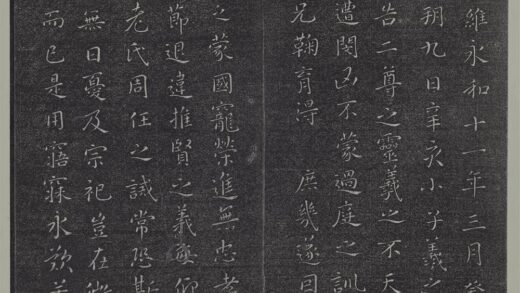 維永和十一年三月癸
朔九日辛亥小子羲之
告二尊之靈羲之不天
遭閔凶不蒙過庭之訓
兄鞠育得 庶幾遂因
乏蒙國寵榮進無忠孝
節退違推賢之義每仰
老氏周任之誡常恐斯
無日憂及宗祀豈在微
而已是用寤寐永歎若